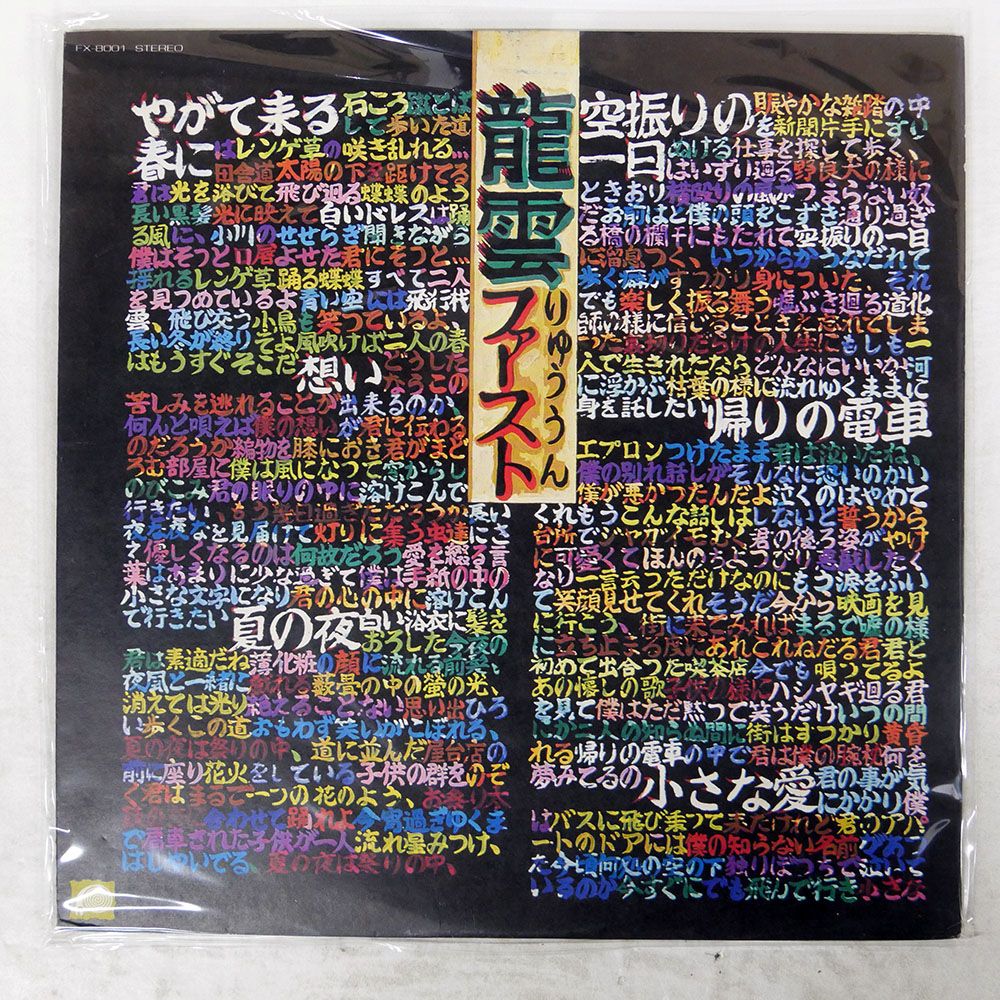 FX-8001 STEREO
龍雲
ファースト
りゅううん
やがて来る
春に
石ころ
して歩いた道
はレンゲ草の咲き乱れる…
田舎道太陽の下を駈けてる
君は光を浴びて飛び廻る蝶蝶のよう
長い黒髪光に映えて白いドレスは踊
る風に、小川のせせらぎ聞きながら
僕はそっと口唇よせた君にそっと…
揺れるレンゲ草踊る蝶蝶すべて二人
を見つめているよ青い空には飛行機
雲、飛び交う小鳥も笑っているよ、
長い冬が終りそよ風吹けば二人の春
はもうすぐそこだ
想い
どうした
ならこの
苦しみを逃れることが出来るのか、
何んと唄えば僕の想いが君に伝わる
のだろうか編物を膝におき君がまど
ろむ部屋に僕は風になって窓からし
のびこみ君の眠りの中に溶けこんで
行きたい、
を見届けて灯りに集う虫達にさ
え優しくなるのは何故だろう愛を綴る言
葉はあまりに少な過ぎて僕は手紙の中の
小さな文字になり君の心の中に溶けこん
で行きたい
夏の夜
白い浴衣に髪を
おろした今夜の
君は素適だね薄化粧の顔に流れる前髪、
夜風と一緒に
藪畳の中の螢の光、
消えては光り消えることない思い出ひろ
い歩くこの道おもわず笑いがこぼれる、
夏の夜は祭りの中、道に並んだ屋台店の
前に座り花火をしている子供の群をのぞ
く君はまるで一つの花のよう、お祭り太
今宵過ぎゆくま
で肩車された子供が一人流れ星みつけ、
はしゃいでる、夏の夜は祭りの中、
空振りの
一日
賑やかな雑踏の中
を新聞片手にすり
ぬける仕事を探して歩く、
はいずり廻る野良犬の様に
ときおり横殴りの風がつまらない奴
だお前はと僕の頭をこずき通り過ぎ
る橋の欄干にもたれて空振りの一日
に溜息つく、いつからかうなだれて
歩く癖がすっかり身についた、それ
でも楽しく振る舞う嘘ぶき廻る道化
師の様に信じることさえ忘れてしま
った空振りだらけの人生にもしも一
人で生きれたならどんなにいいか河
に浮かぶ枯葉の様に流れゆくままに
身を託したい
帰りの電車
エプロンつけたまま君は泣いたね、
僕の別れ話しがそんなに恐いのかい
僕が悪かったんだよ泣くのはやめて
くれもうこんな話しはしないと誓うから
台所でジャガイモむく君の後ろ姿がやけ
に可愛くてほんのちょっぴり意地悪したく
なり一言云っただけなのにもう涙をふい
て笑顔見せてくれそうだ今から映画を見
に行こう、街に来てみればまるで嘘の様
に立ち止まる度にあれこれねだる君君と
初めて出合った喫茶店今でも唄ってるよ
あの懐しの歌子供の様にハシャギ廻る君
を見て僕はただ黙って笑うだけいつの間
にか二人の知らぬ間に街はすっかり黄昏
れる帰りの電車の中で君は僕の腕枕何を
夢みてるの
小さな愛
君の事が気
にかかり僕
はバスに飛び乗って来たけれど君のアパ
ートのドアには僕の知らない名前があっ
た今頃何処の空の下独りぼっちで泣いて
いるのか今すぐにでも飛んで行き小さな